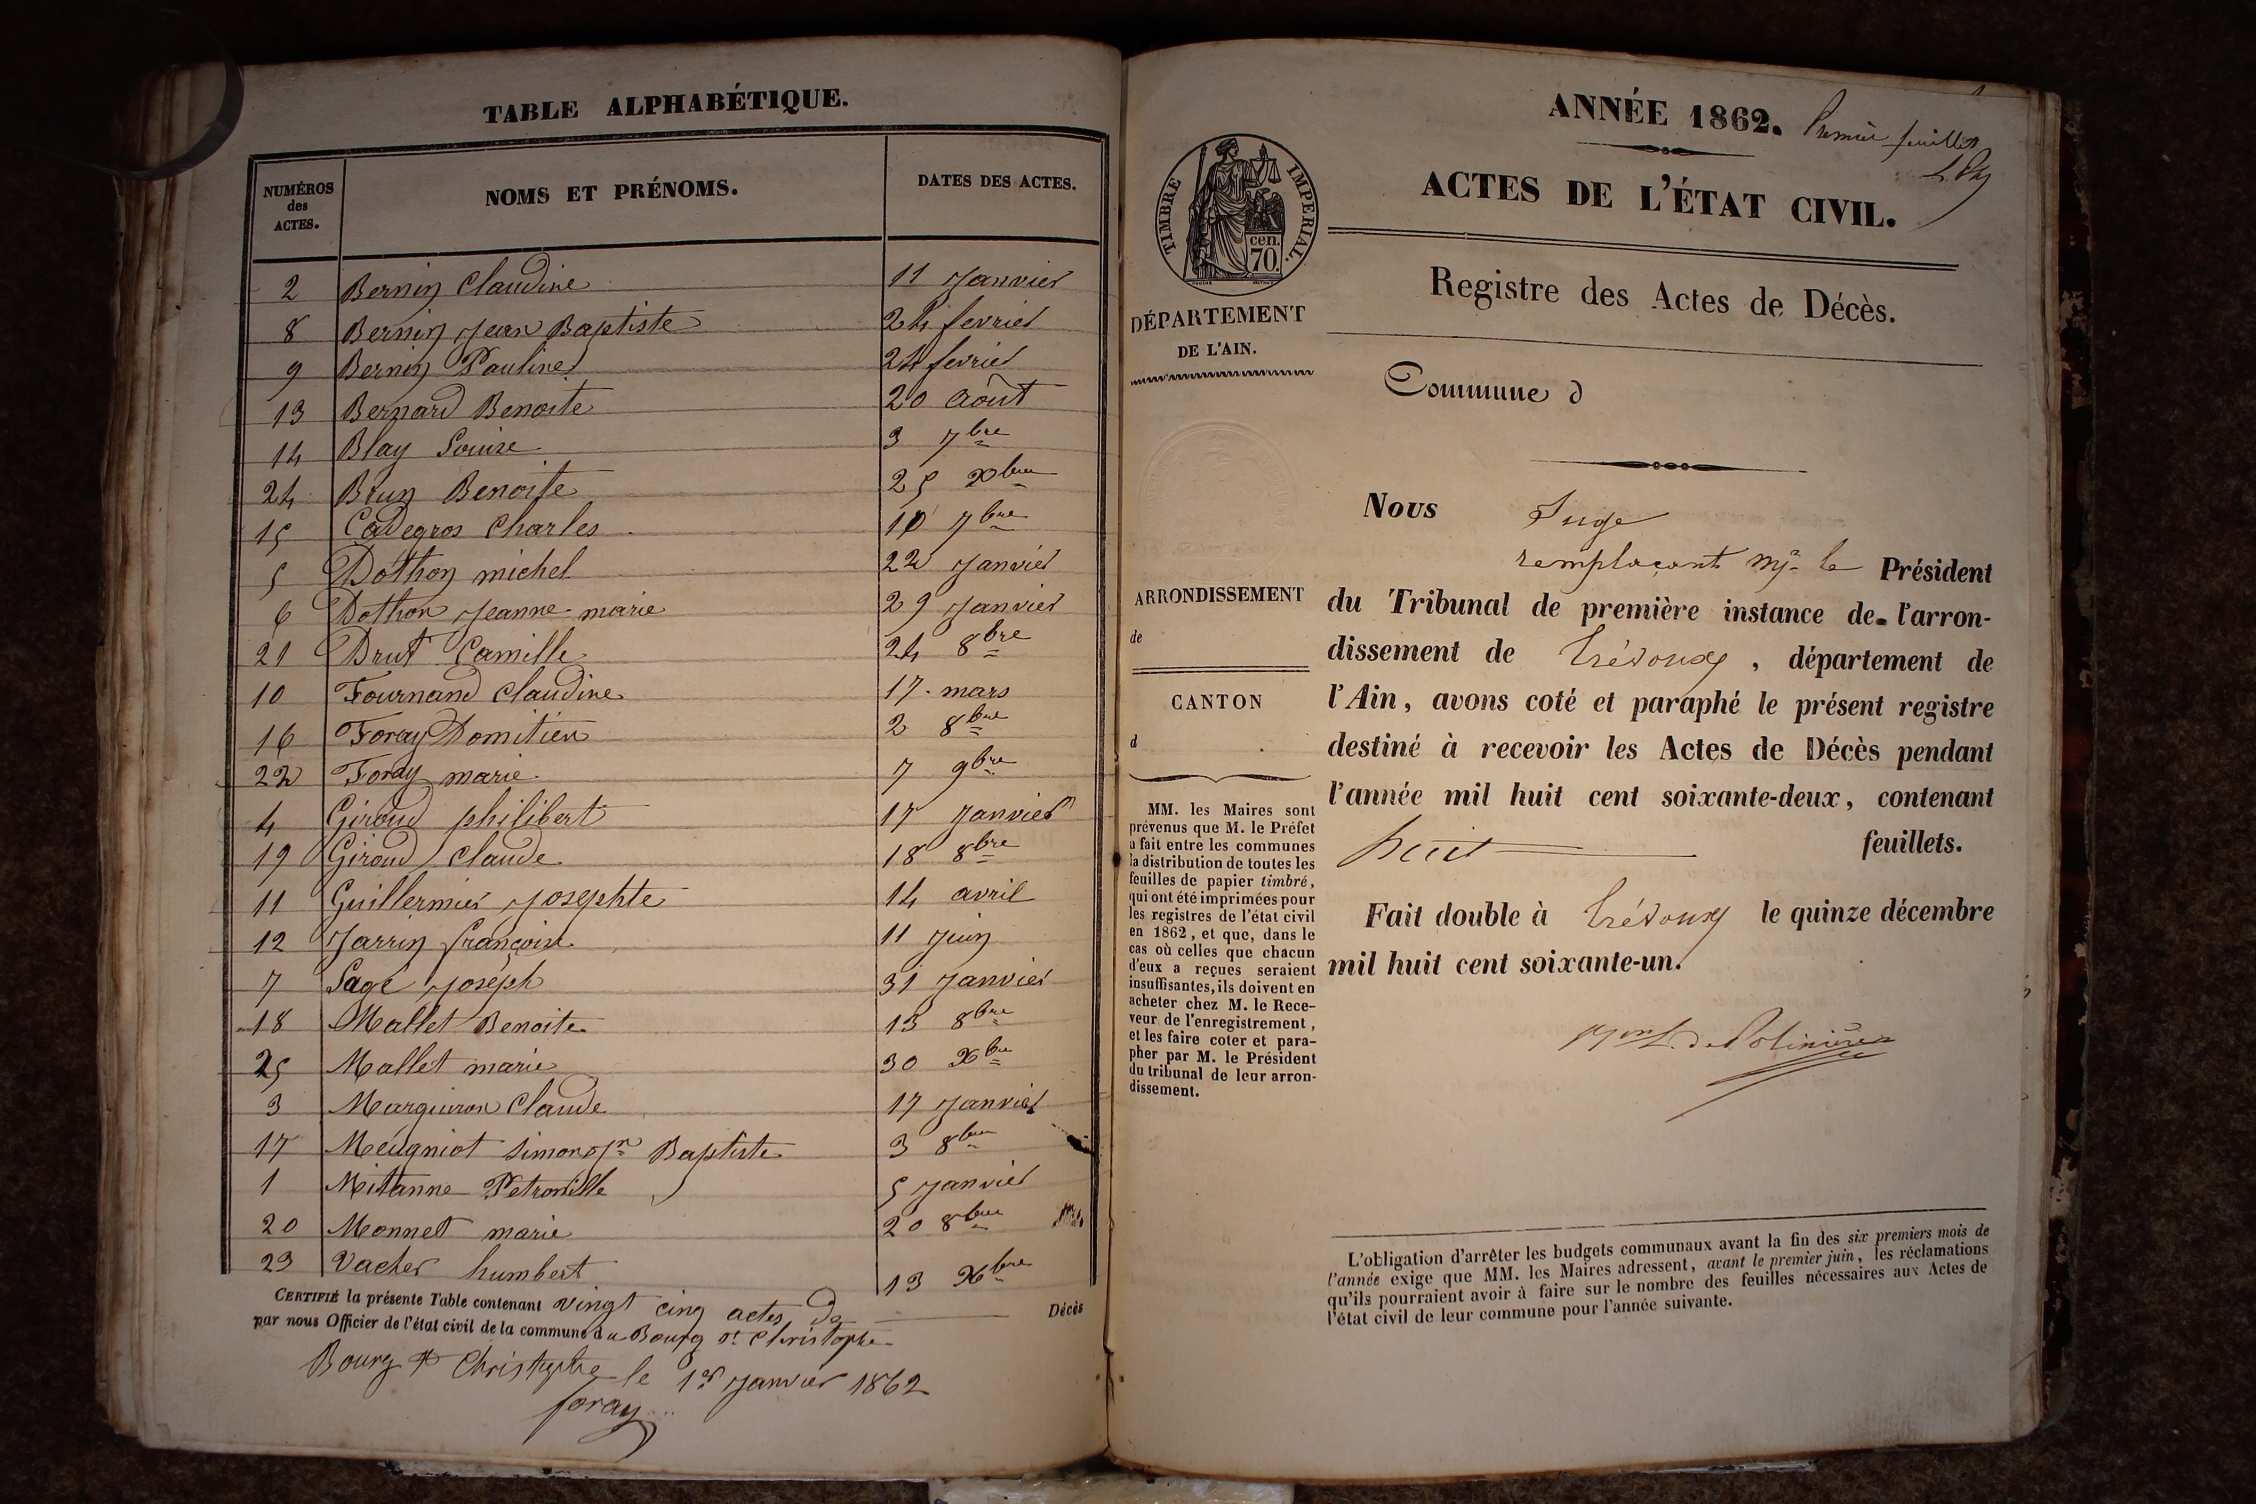 TABLE ALPHABÉTIQUE.
NUMÉROS des ACTES. NOMS ET PRÉNOMS. DATES DES ACTES.
2 Bernin Claudine 11 Janvier
8 Bernin Jean Baptiste 24 fevrier
9 Bernin Pauline 24 fevrier
13 Bernard Benoite 20 Août
14 Blay Louise 3 7bre
24 Brun Benoite 25 Xbre
15 Cadegros Charles 10 7bre
5 Dothon michel 22 Janvier
6 Dothon Jeanne marie 29 Janvier
21 Drut Camille 24 8bre
10 Fournand Claudine 17 mars
16 Foray Domitien 2 8bre
22 Foray marie 7 9bre
4 Giroud philibert 17 Janvier
19 Giroud Claude 18 8bre
11 Guillermier Josephte 14 avril
12 Jarrin françoise 11 Juin
7 Sage Joseph 31 Janvier
18 Mallet Benoite 13 8bre
25 Mallet marie 30 Xbre
3 Marguiron Claude 17 Janvier
17 Meugniot simon Jn Baptiste 3 8bre
1 Mitanne Petronille 5 Janvier
20 Monnet marie 20 8bre
23 Vacher humbert 13 Xbre
CERTIFIÉ la présente Table contenant vingt cinq actes de Décès
par nous Officier de l'état civil de la commune du Bourg St Christophe
Bourg St Christophe le 1er Janvier 1862
foray
ANNÉE 1862. Premier feuillet
ACTES DE L'ÉTAT CIVIL.
TIMBRE IMPERIAL.
cen.
70.
Registre des Actes de Décès.
DÉPARTEMENT
DE L'AIN.
Commune d
Nous Juge
remplaçant Mr le Président
ARRONDISSEMENT
de
CANTON
d
du Tribunal de première instance de l'arron-
dissement de Trévoux, département de
l'Ain, avons coté et paraphé le présent registre
destiné à recevoir les Actes de Décès pendant
l'année mil huit cent soixante-deux, contenant
huit feuillets.
Fait double à Trévoux le quinze décembre
mil huit cent soixante-un.
de Polinière
MM. les Maires sont
prévenus que M. le Préfet
a fait entre les communes
la distribution de toutes les
feuilles de papier timbré,
qui ont été imprimées pour
les registres de l'état civil
en 1862, et que, dans le
cas où celles que chacun
d'eux a reçues seraient
insuffisantes, ils doivent en
acheter chez M. le Rece-
veur de l'enregistrement,
et les faire coter et para-
pher par M. le Président
du tribunal de leur arron-
dissement.
L'obligation d'arrêter les budgets communaux avant la fin des six premiers mois de
l'année exige que MM. les Maires adressent, avant le premier juin, les réclamations
qu'ils pourraient avoir à faire sur le nombre des feuilles nécessaires aux Actes de
l'état civil de leur commune pour l'année suivante.